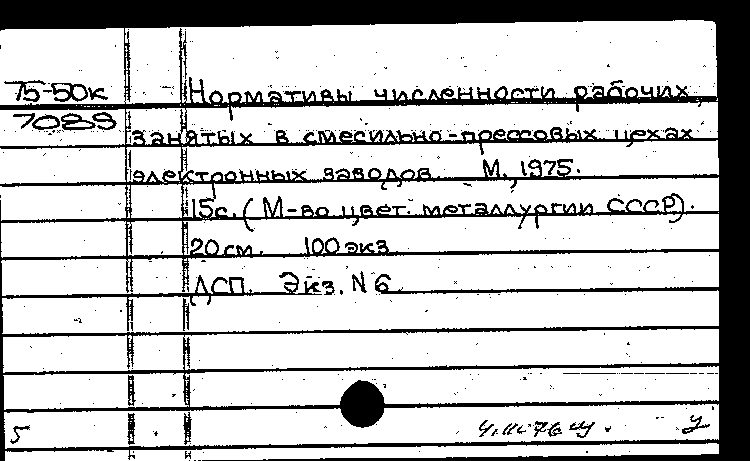 75-50к Нормативы численности рабочих,
7089 занятых в смесильно-прессовых цехах
электронных заводов. М., 1975.
15с. (М-во цвет. металлургии СССР).
20см. 100 экз
ДСП. Экз. N 6
5 у